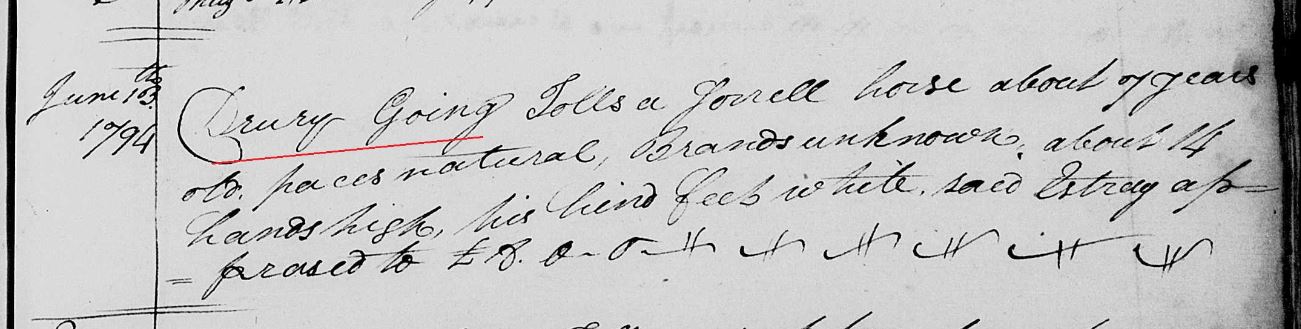 June 13th
1794
Drury Going Tolls a Sorrell horse about 7 years
old. paces natural, Brands unknown, about 14
hands high, his hind feet white. said Estray ap=
= praised to £8. 0 - 0